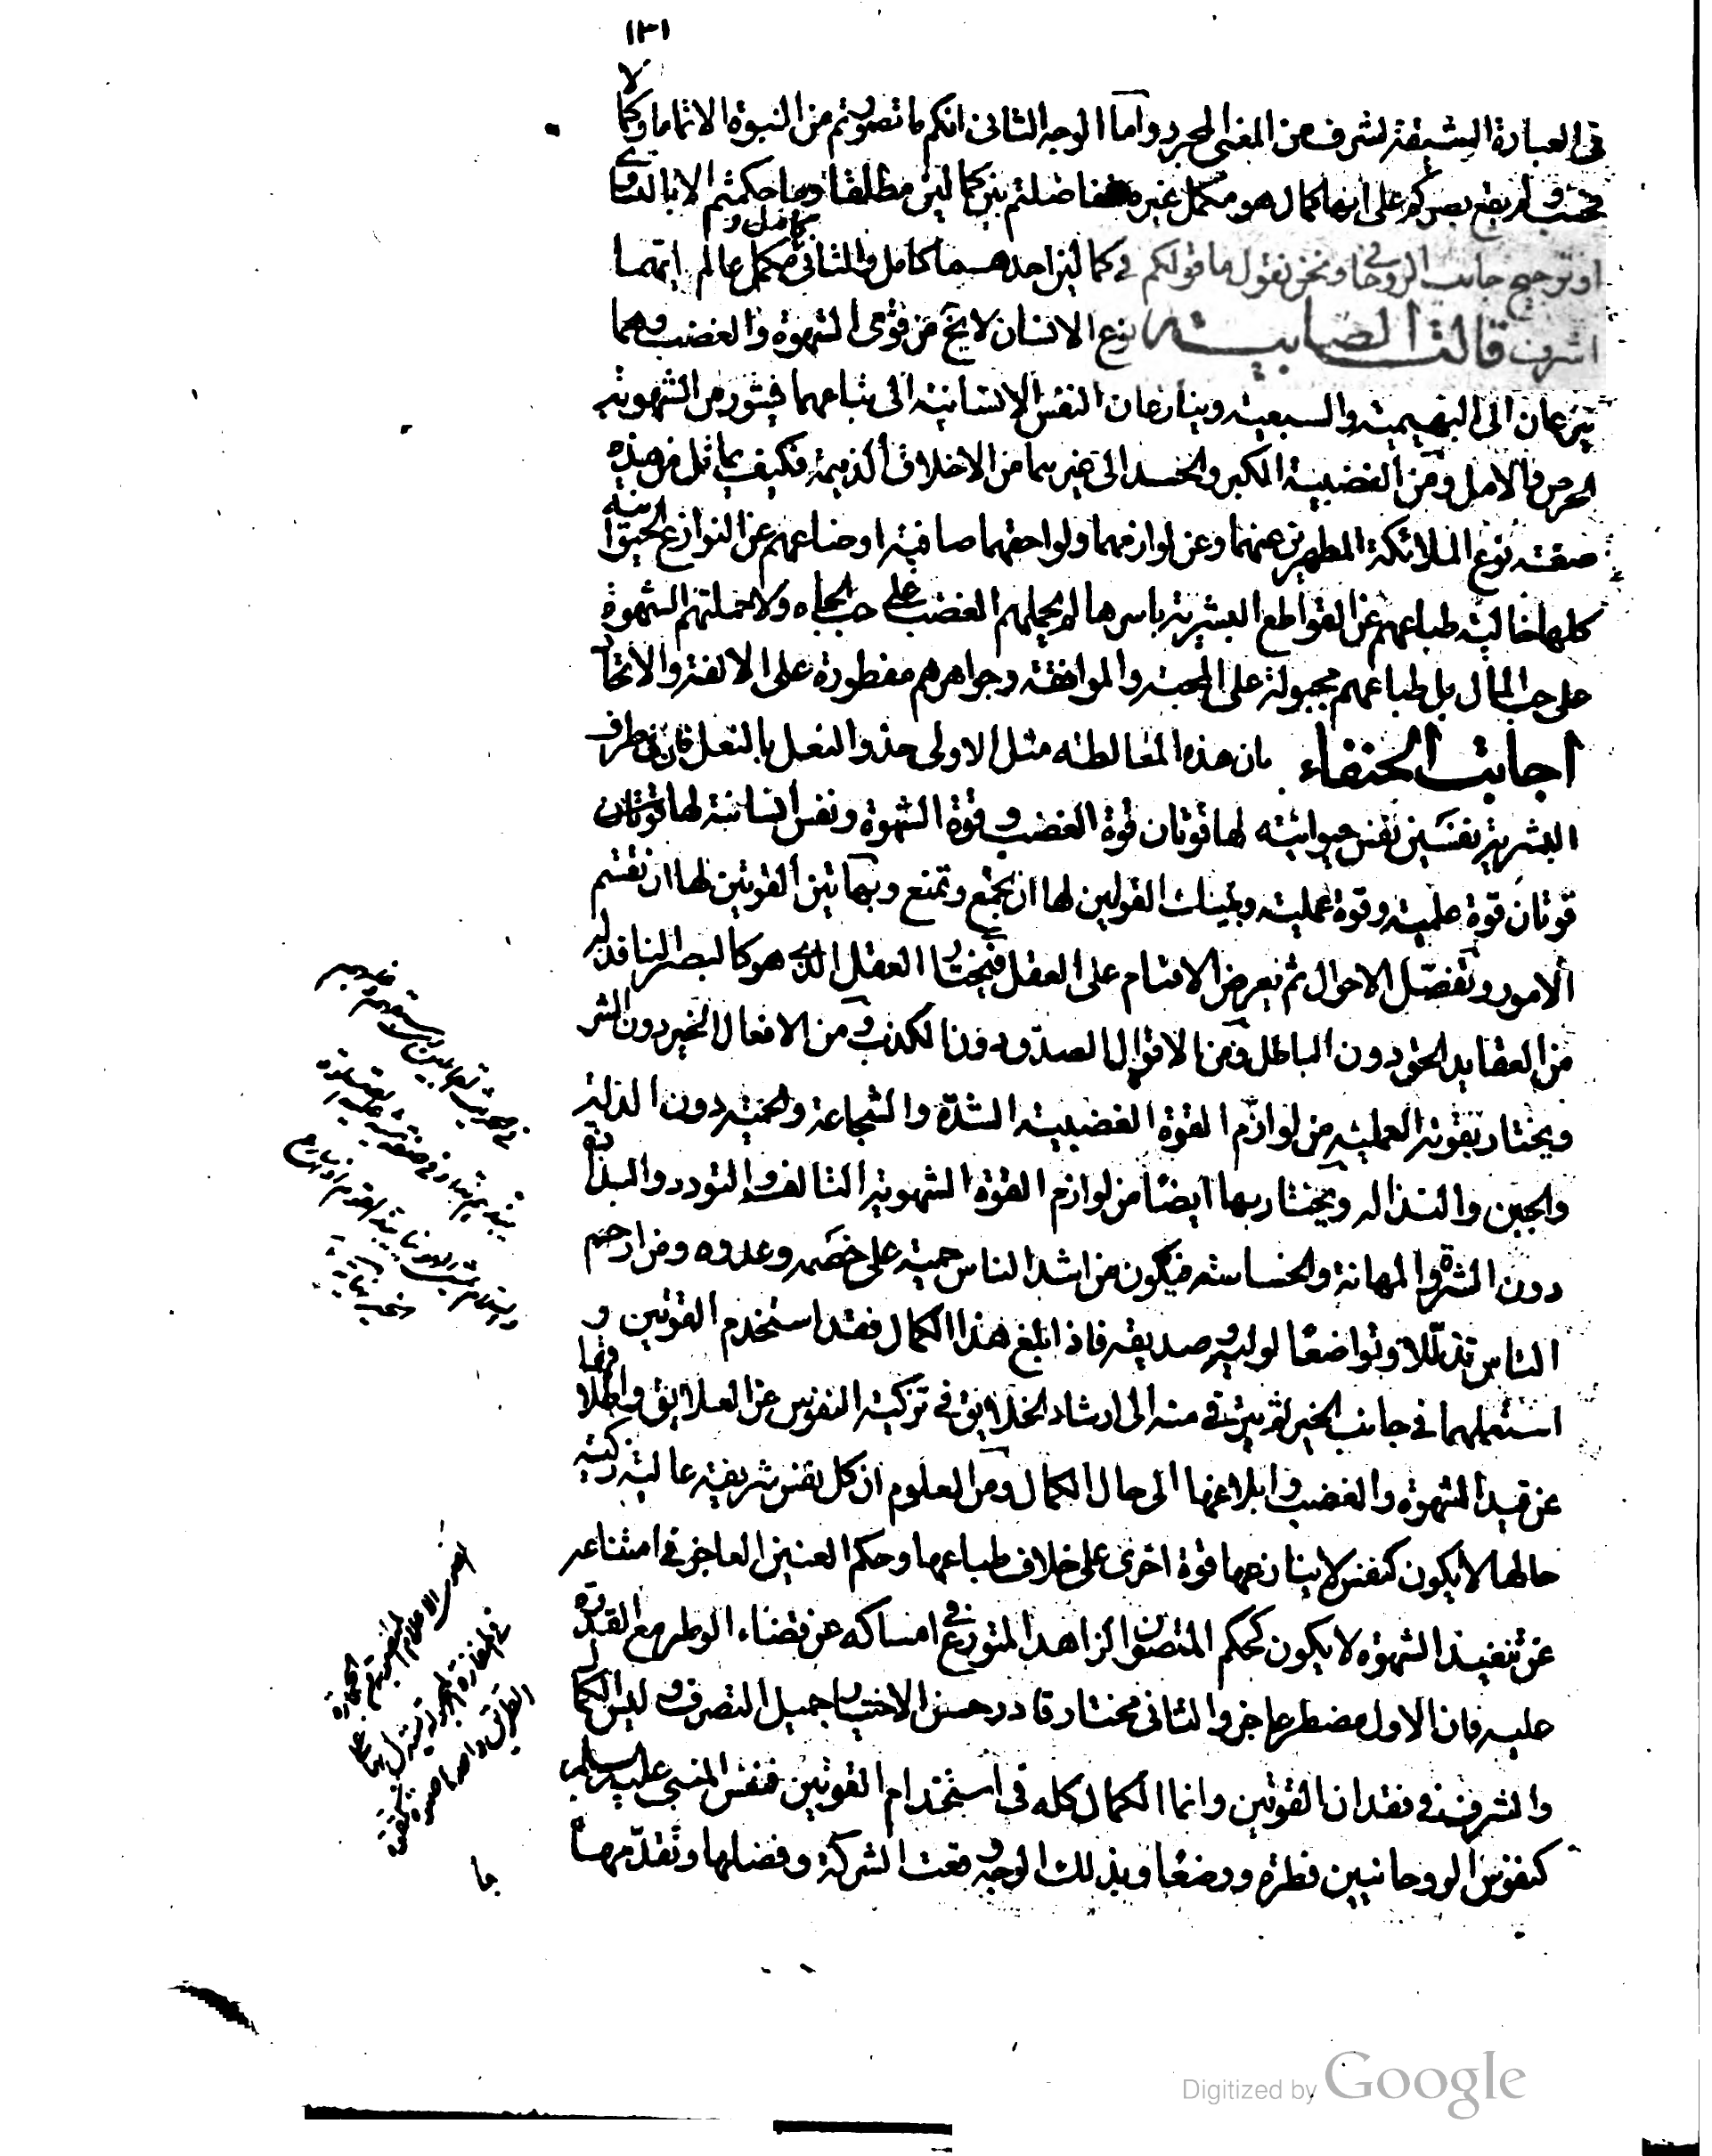 ١٣١
في العبارة الرشيقة لشرف من المعنى المجرد واما الوجه الثاني انكم ما تصورتم من النبوة الا تماما وكمالا
فحسب ولم يقع بصركم على انها كمال هو مكمل غيره ففاضلتم بين كمالين مطلقا وما حكمتم الا بالتساوي
او ترجيح جانب الروحاني ونحن نقول ما قولكم في كمالين احدهما كامل والثاني كامل ومكمل عالم ايهما
اشرف قالت الصابئة نوع الانسان لا يخ من قوتي الشهوة والغضب وهما
ينزعان الى البهيمية والسبعية وينازعان النفس الانسانية الى طباعهما فيثور من الشهوية
الحرص والامل ومن الغضبية الكبر والحسد الى غيرهما من الاخلاق الذميمة فكيف يماثل من هذه
صفته نوع الملائكة المطهرين عنهما وعن لوازمهما ولواحقهما صافية اوضاعهم عن النوازع الحيوانية
كلها خالية طباعهم عن القواطع البشرية باسرها لم يحملهم الغضب على حب الجاه ولا حملتهم الشهوة
على حب المال بل طباعهم مجبولة على المحبة والموافقة وجواهرهم مفطورة على الالفة والاتحاد
اجابت الحنفاء بان هذه المغالطة مثل الاولى حذو النعل بالنعل فان في طرف
البشرية نفسين نفس حيوانية لها قوتان قوة الغضب وقوة الشهوة ونفس انسانية لها قوتان
قوتان قوة علمية وقوة عملية وبتينك القوتين لها ان تجمع وتمنع وبهاتين القوتين لها ان تقسم
الامور وتفصل الاحوال ثم تعرض الاقسام على العقل فيختار العقل الذي هو كالبصر النافذ له
من العقايد الحق دون الباطل ومن الاقوال الصدق دون الكذب ومن الافعال الخير دون الشر
ويختار بقوته العملية من لوازم القوة الغضبية الشدة والشجاعة والحمية دون الذلة
والجبن والنذالة ويختار بها ايضا من لوازم القوة الشهوية التالف والتودد والبذاذة
دون الشره والمهانة والخساسة فيكون من اشد الناس حمية على خصمه وعدوه ومن ارحم
الناس تذللا وتواضعا لوليه وصديقه فاذا بلغ هذا الكمال فقد استخدم القوتين و
استعملهما في جانب الخير ثم يترقى منه الى ارشاد الخلايق في تزكية النفوس عن العلايق واطلاقها
عن قيد الشهوة والغضب وابلاغها الى حال الكمال ومن المعلوم ان كل نفس شريفة عالية زكية
حالها لا يكون كنفس لا ينازعها قوة اخرى على خلاف طباعها وحكم العنين العاجز في امتناعه
عن تنفيذ الشهوة لا يكون كحكم المتصون الزاهد المتورع في امساكه عن قضاء الوطر مع القدرة
عليه فان الاول مضطر عاجز والثاني مختار قادر حسن الاختيار جميل التصرف وليس الكمال
والشرف في فقدان القوتين وانما الكمال كله في استخدام القوتين فنفس النبي عليه السلم
كنفوس الروحانيين فطرة ووضعا وبذلك الوجه وقعت الشركة وفضلها وتقدمها
Digitized by Google